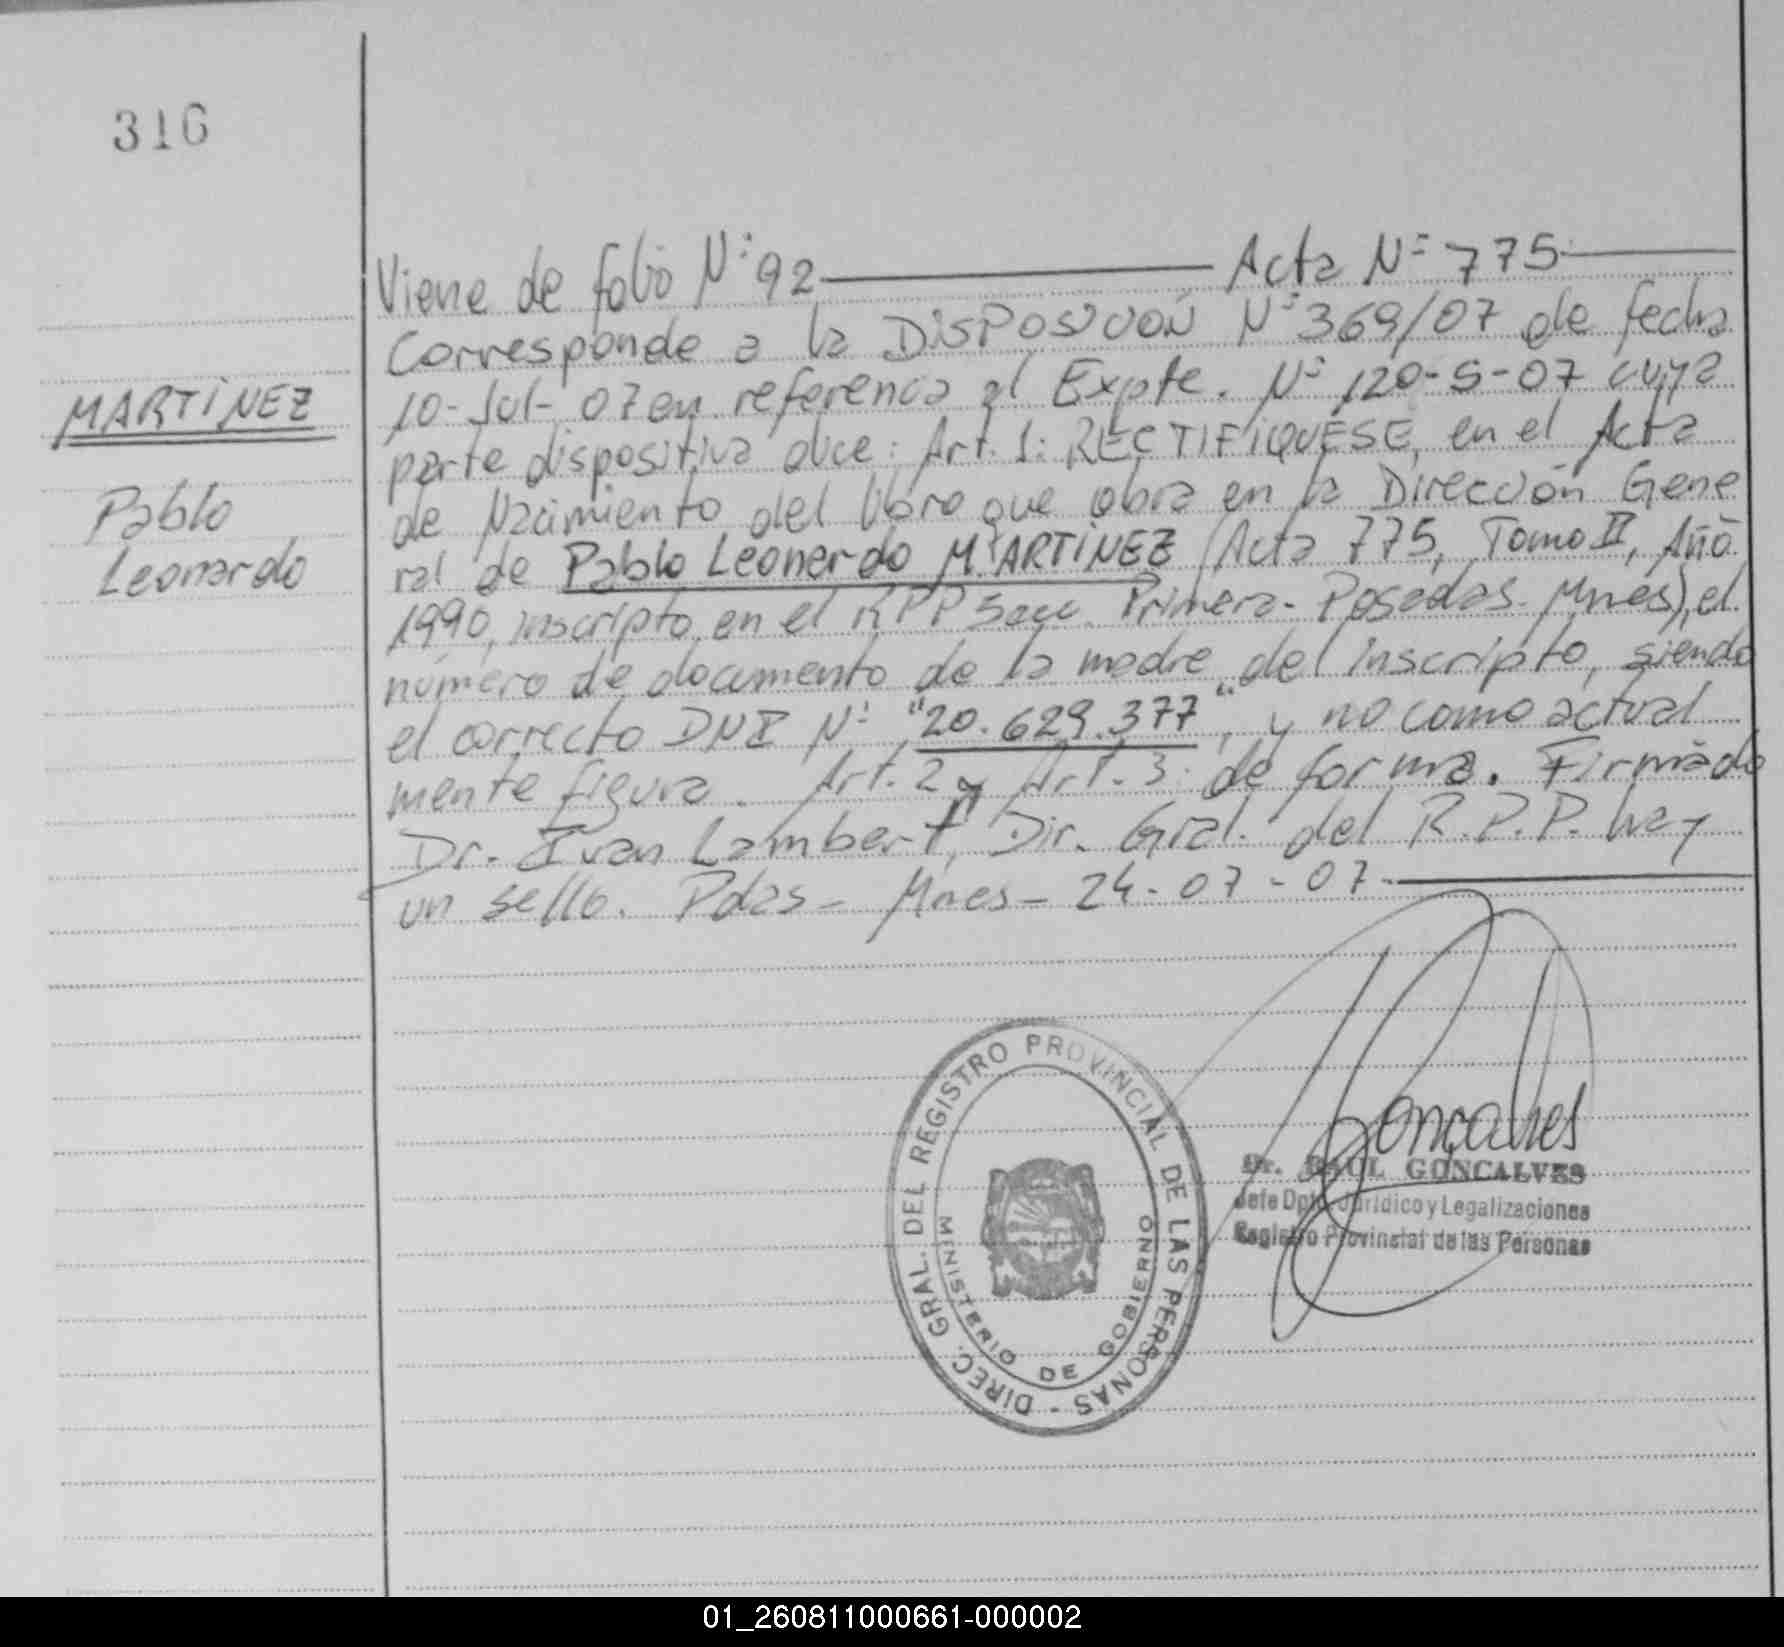 316
MARTINEZ
Pablo
Leonardo
Viene de folio Nº 92 Acta Nº 775
Corresponde a la DISPOSICIÓN Nº 369/07 de fecha
10-Jul-07 en referencia al Expte. Nº 120-S-07 cuya
parte dispositiva dice: Art. 1: RECTIFIQUESE, en el Acta
de Nacimiento del libro que obra en la Dirección Gene
ral de Pablo Leonardo MARTINEZ (Acta 775, Tomo II, Año
1990, inscripto en el RPP Secc. Primera - Posadas - Mnes), el
número de documento de la madre del inscripto, siendo
el correcto DNI Nº "20.629.377", y no como actual
mente figura. Art. 2 y Art. 3: de forma. Firmado
Dr. Ivan Lambert, Dir. Gral. del R.P.P. hay
un sello. Pdas - Mnes - 24-07-07
DIREC. GRAL. DEL REGISTRO PROVINCIAL DE LAS PERSONAS -
MINISTERIO DE GOBIERNO
Goncalves
Dr. RAUL GONCALVES
Jefe Dpto. Jurídico y Legalizaciones
Registro Provincial de las Personas
01_260811000661-000002